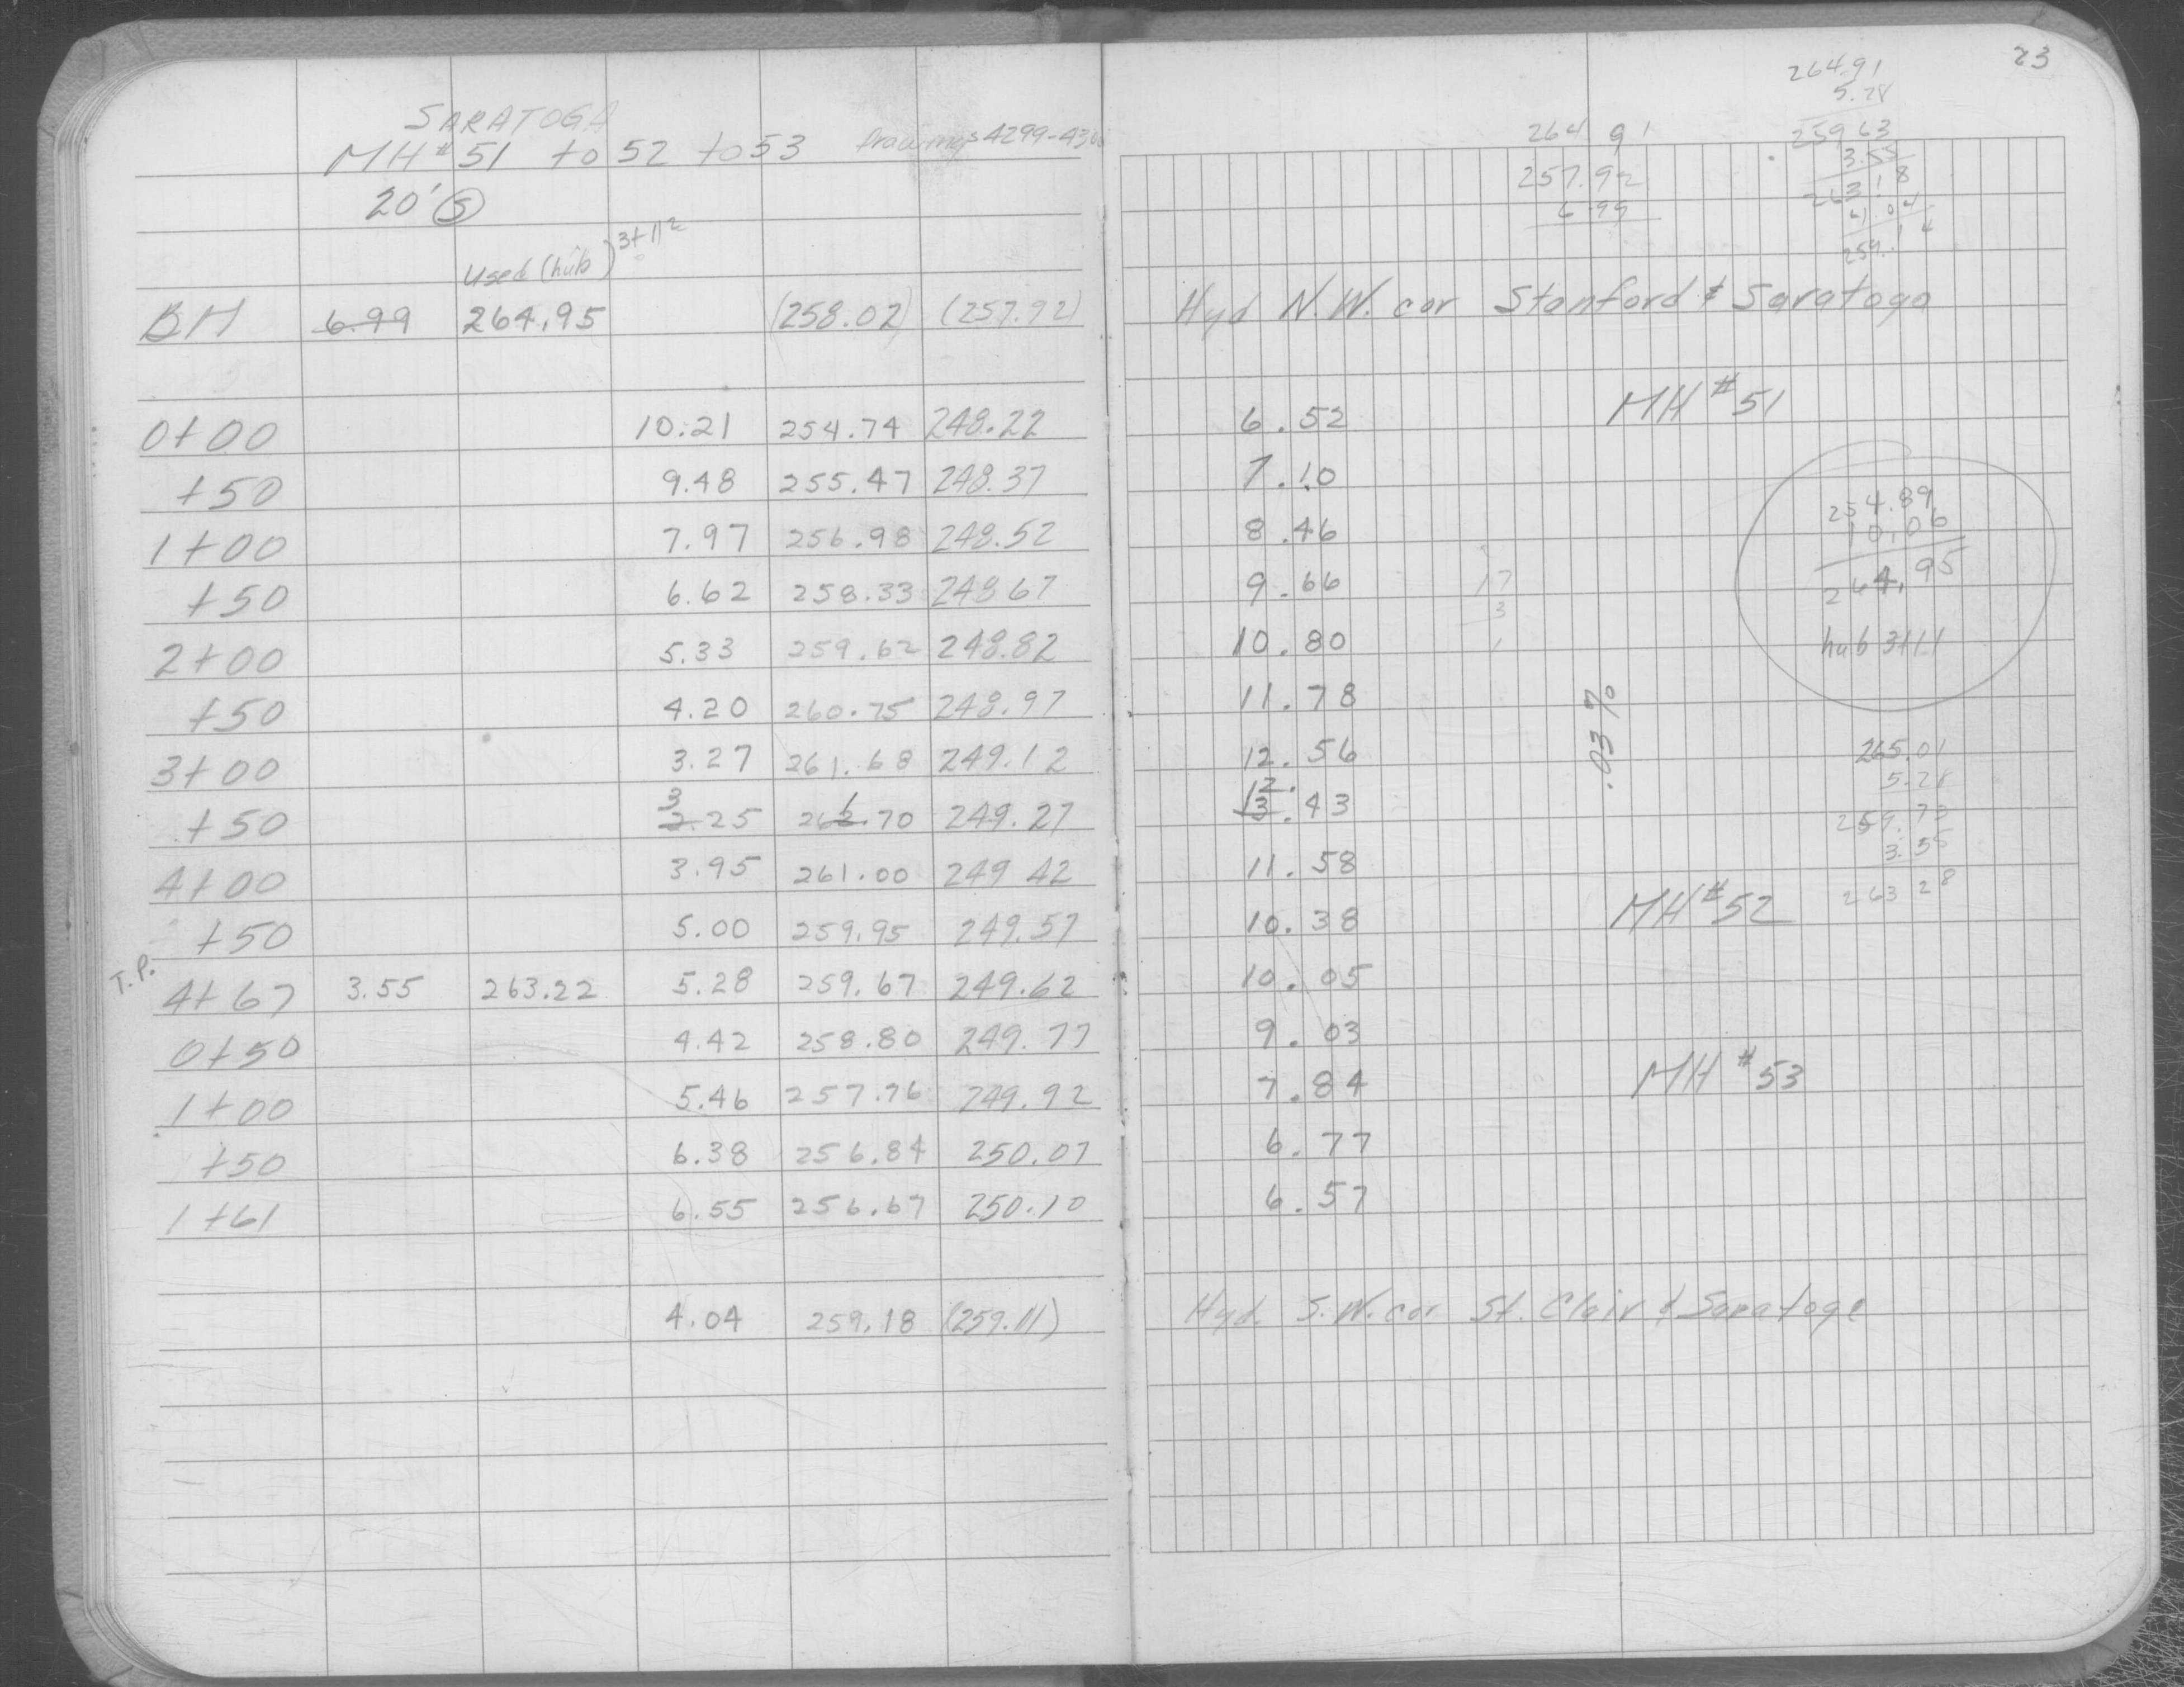 SARATOGA
MH# 51 to 52 to 53 Drawings 4299-430
20' S
used (hub) 3+11²
BM 6.99 264.95 (258.02) (257.92)
0+00 10.21 254.74 248.22
+50 9.48 255.47 248.37
1+00 7.97 256.98 248.52
+50 6.62 258.33 248.67
2+00 5.33 259.62 248.82
+50 4.20 260.75 248.97
3+00 3.27 261.68 249.12
3 1
+50 2.25 262.70 249.27
4+00 3.95 261.00 249.42
+50 5.00 259.95 249.57
T.P. 4+67 3.55 263.22 5.28 259.67 249.62
0+50 4.42 258.80 249.77
1+00 5.46 257.76 249.92
+50 6.38 256.84 250.07
1+61 6.55 256.67 250.10
4.04 259.18 (259.11)
23
264.91
5.28
259.63
3.55
263.18
4.04
259.14
264.91
257.92
6.99
Hyd N.W. cor Stanford & Saratoga
6.52 MH #51
7.10
8.46
9.66
10.80
11.78
12.56
12.
13.43
11.58
10.38 MH #52
10.05
9.03
7.84 MH #53
6.77
6.57
17
3
1
.03%
254.89
10.06
264.95
hub 3+11
265.01
5.28
259.73
3.55
263.28
Hyd. S.W. cor St. Clair & Saratoga